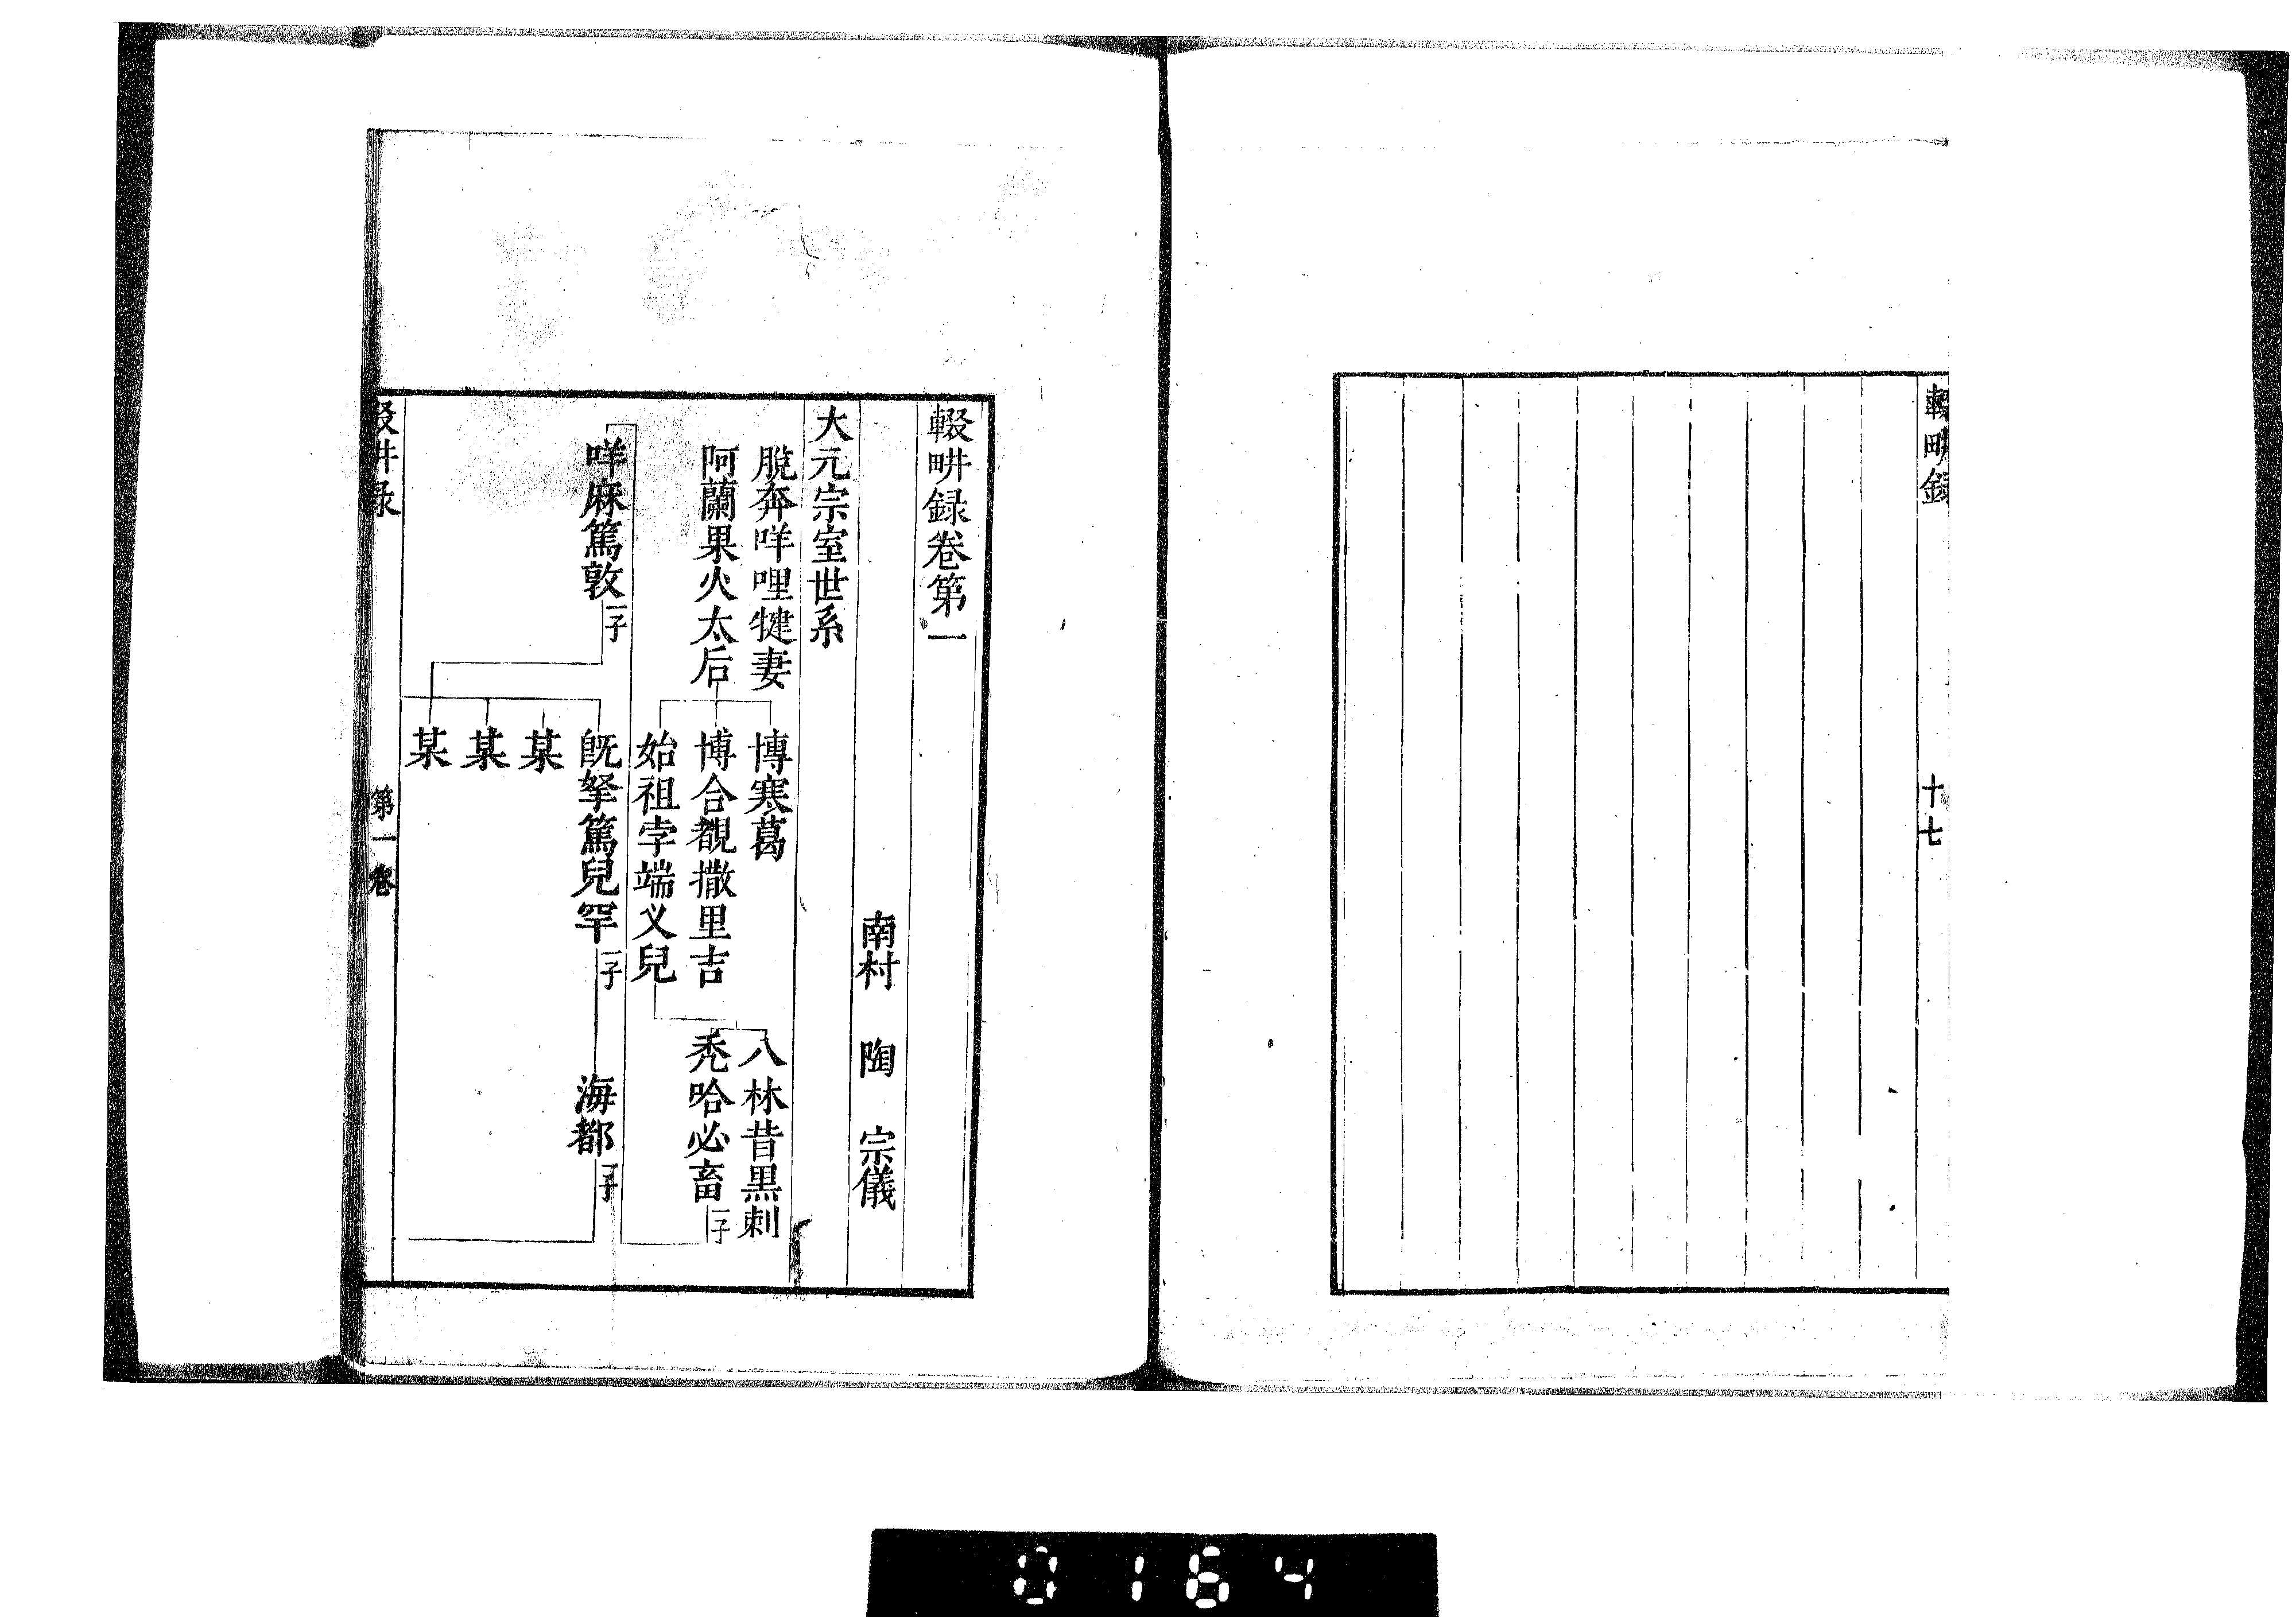 輟畊録
十七
輟畊録卷第一
南村 陶 宗儀
大元宗室世系
脫奔咩哩犍妻
阿蘭果火太后
博寒葛
博合覩撒里吉
始祖孛端义兒
八林昔黒剌
禿哈必畜
一子
咩麻篤敦
一子
旣拏篤兒罕
一子
海都
一子
某
某
某
第一卷
0164